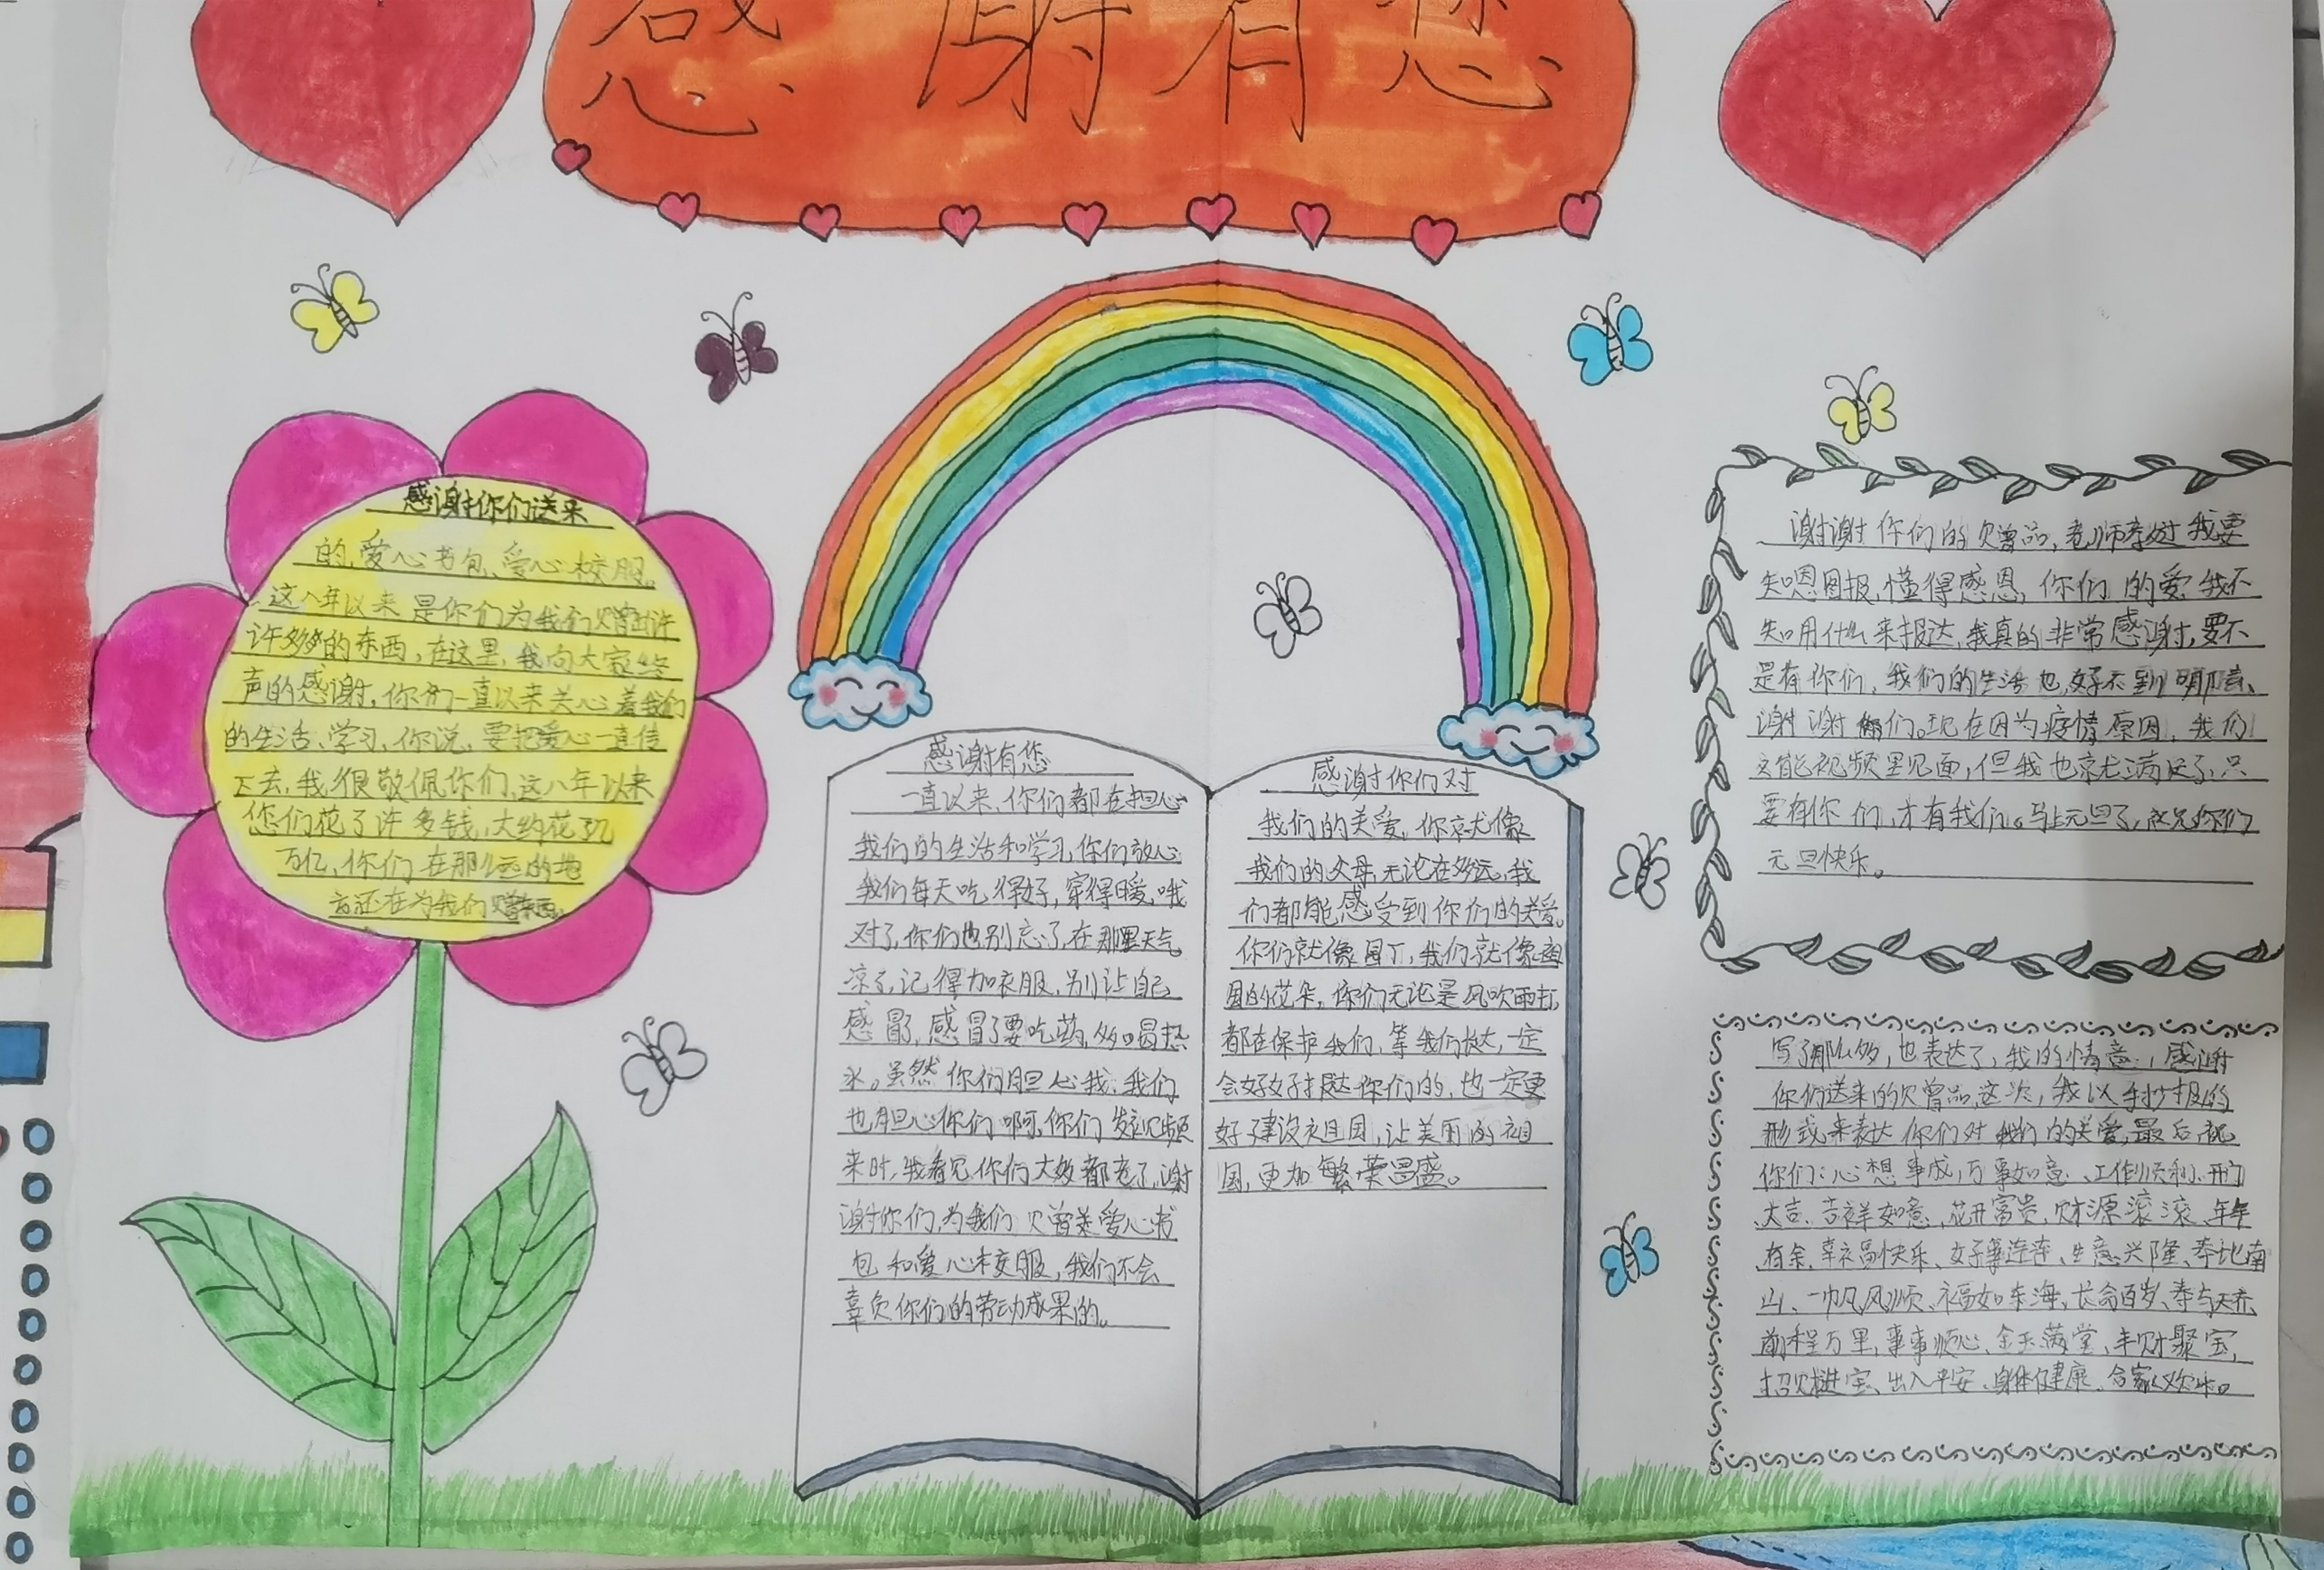 感谢有您
感谢你们送来
的,爱心书包、爱心校服。
这八年以来是你们为我们赠出许
许多多的东西,在这里,我向大家
声的感谢,你们一直以来关心着我们
的生活、学习,你说,要把爱心一直传
下去,我很敬佩你们,这八年以来
您们花了许多钱,大约花了几
万亿,你们在那么远的地
方还在为我们赠东西。
感谢有您
一直以来,你们都在担心
我们的生活和学习,你们放心
我们每天吃得好,穿得暖,哦
对了,你们也别忘了,在那里天气
凉了,记得加衣服,别让自己
感冒了,感冒了要吃药,多喝热
水。虽然你们胆心我,我们
也胆心你们啊,你们发视频
来时,我看见你们大多都老了,谢
谢你们,为我们赠送爱心书
包和爱心校服,我们不会
辜负你们的劳动成果的。
感谢你们对
我们的关爱,你就像
我们的父母,无论在多远,我
们都能感受到你们的关爱。
你们就像园丁,我们就像花
园的花朵,你们无论是风吹雨打,
都在保护我们,等我们长大,一定
会好好报达你们的,也一定更
好建设祖国,让美丽的祖
国,更加繁荣昌盛。
谢谢你们的赠品,老师对我要
知恩图报,懂得感恩,你们的爱我不
知用什么来报达,我真的非常感谢,要不
是有你们,我们的生活也好不到哪去、
谢谢你们。现在因为疫情原因,我们
只能视频里见面,但我也就满足了,只
要有你们,才有我们。马上元旦了,祝你们
元旦快乐。
写了那么多,也表达了,我的情意,感谢
你们送来的赠品,这次,我以手抄报的
形式来表达你们对我们的关爱,最后,祝
你们:心想事成,万事如意、工作顺利、开门
大吉、吉祥如意、花开富贵,财源滚滚、年年
有余,幸福快乐、好事连连、生意兴隆、寿比南
山、一帆风顺、福如东海,长命百岁、寿与天齐
前程万里,事事顺心、金玉满堂、丰财聚宝,
招财进宝、出入平安、身体健康、合家欢乐。